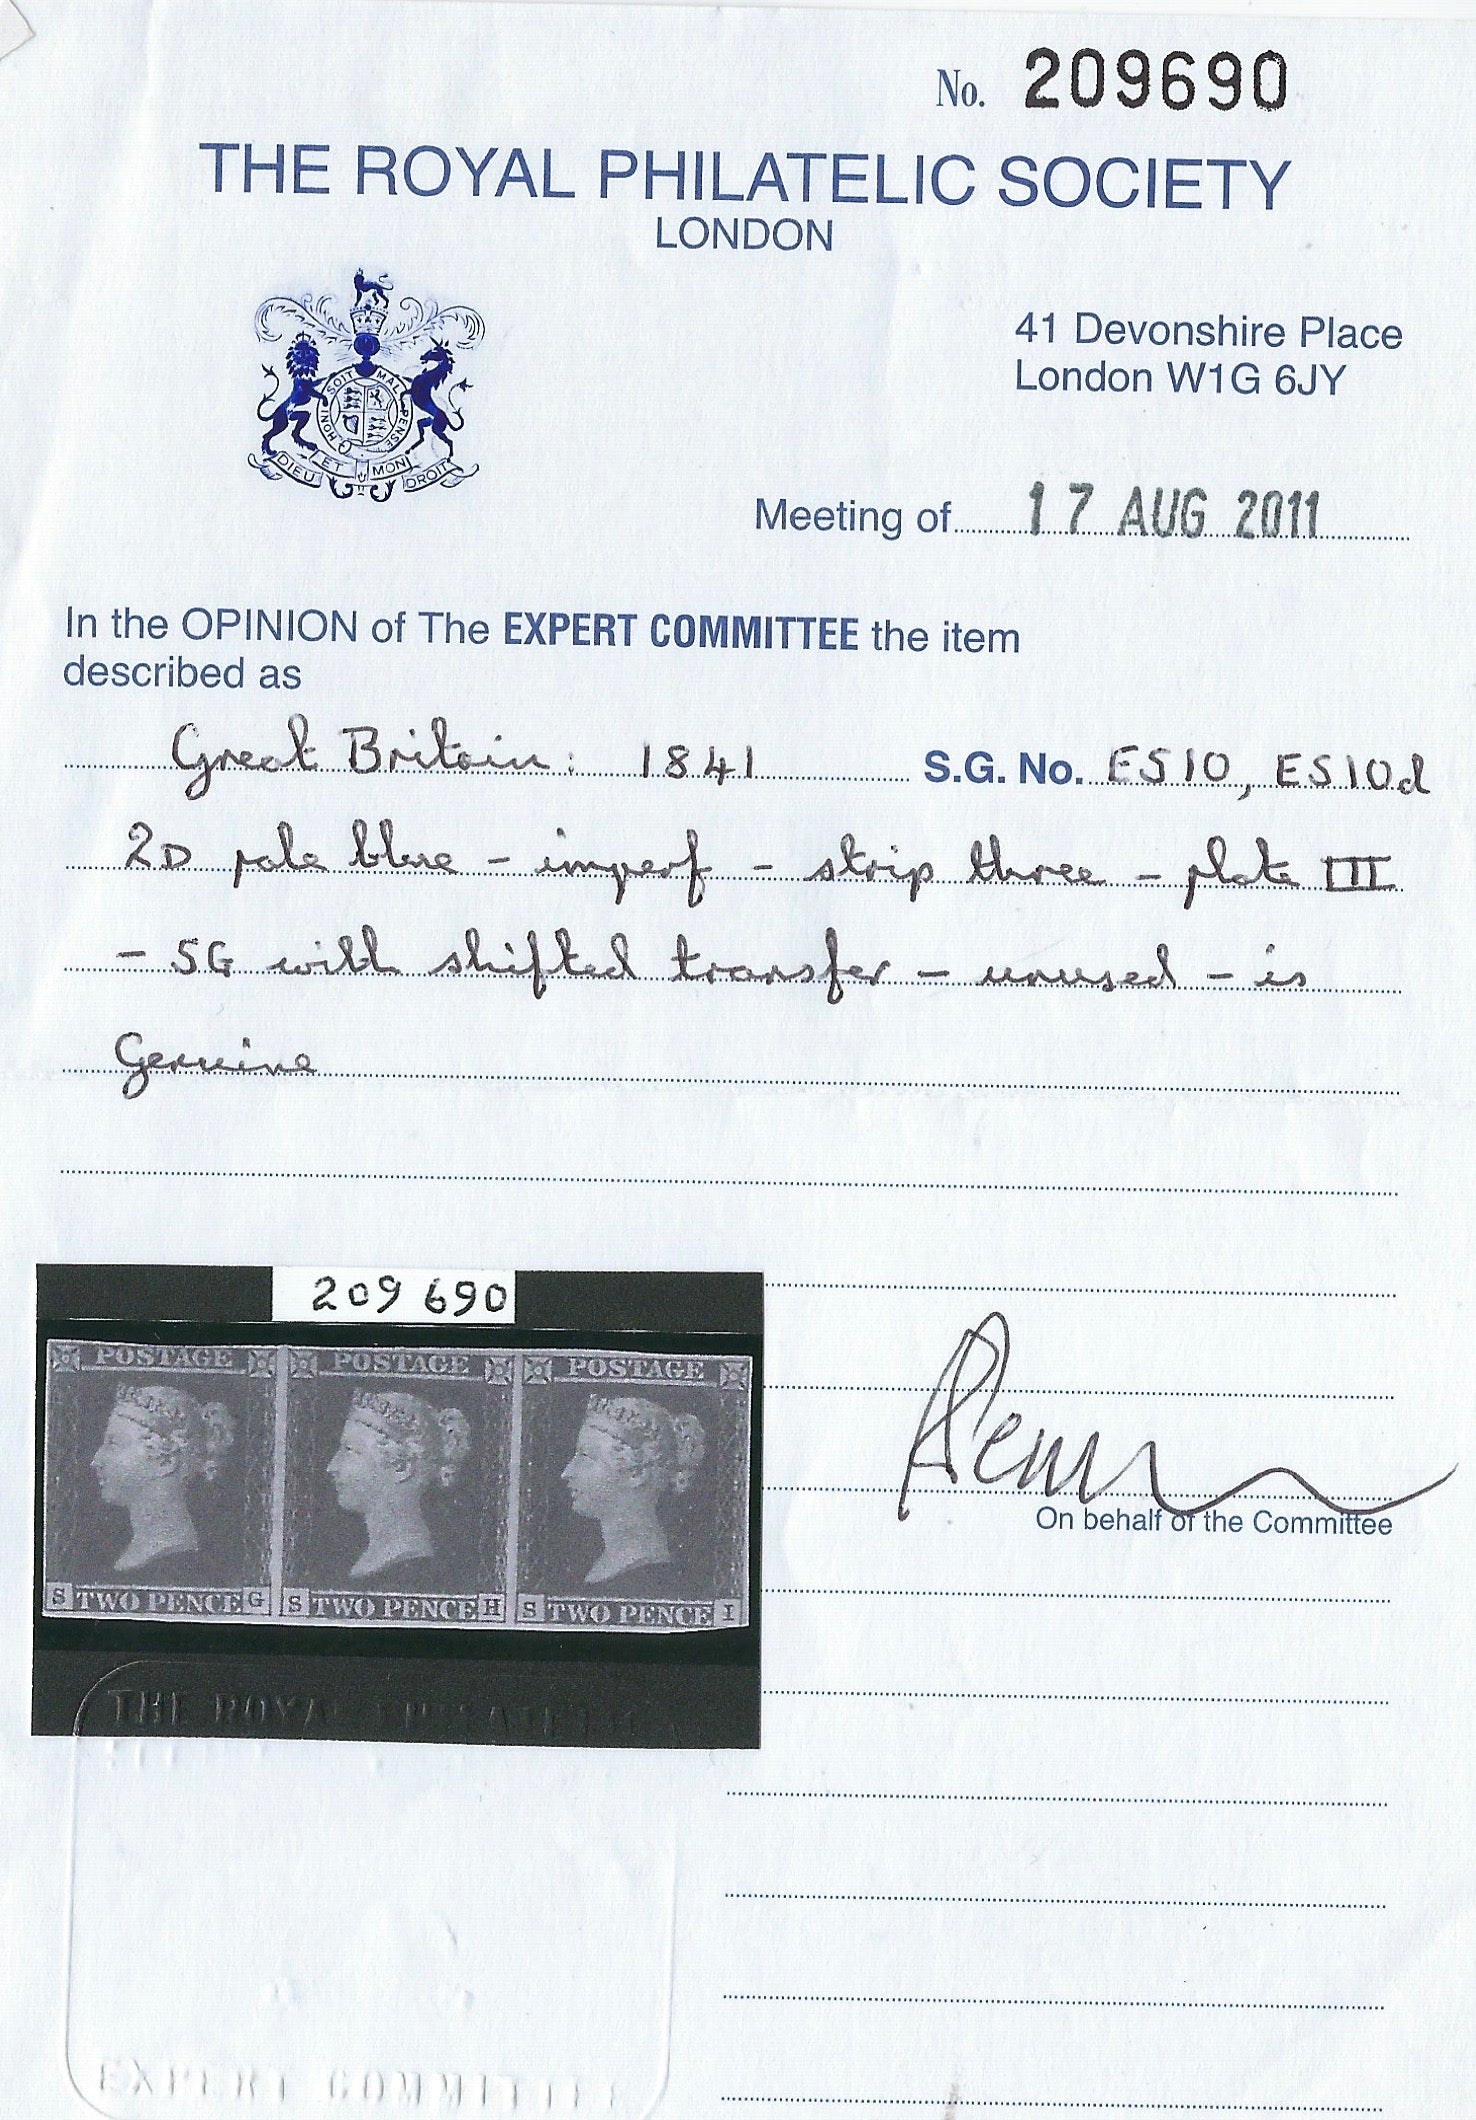 No. 209690
THE ROYAL PHILATELIC SOCIETY
LONDON
HONI SOIT MAL PENSE
DIEU ET MON DROIT
41 Devonshire Place
London W1G 6JY
Meeting of 17 AUG 2011
In the OPINION of The EXPERT COMMITTEE the item
described as
Great Britain: 1841 S.G. No. ES10, ES10d
2D pale blue - imperf - strip three - plate III
- SG with shifted transfer - unused - is
Genuine
209 690
POSTAGE POSTAGE POSTAGE
S TWO PENCE G S TWO PENCE H S TWO PENCE I
On behalf of the Committee
THE ROYAL
EXPERT COMMITTEE